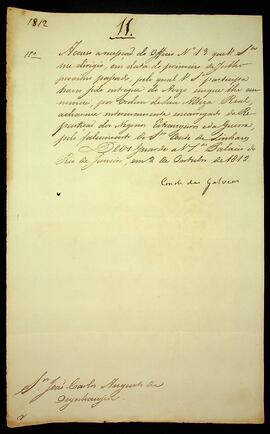 1812
11.
Accuso a recepção do Officio Nº 13 que V. Sª
me dirigio, em data do primeiro de Julho
proximo passado, pelo qual V. Sª participa
haver sido entregue do Avizo em que lhe an-
nuncei, por Ordem de Sua Alteza Real,
achar-me interinamente encarregado da Re-
partição dos Negocios Estrangeiros e da Guerra,
pelo falecimento do Sr. Conde de Linhares
Deos Guarde a V. Sª Palacio do
Rio de Janeiro em 2 de Outubro de 1812.
Conde das Galveas
Sr. João Carlos Augusto de
Oeynhausen